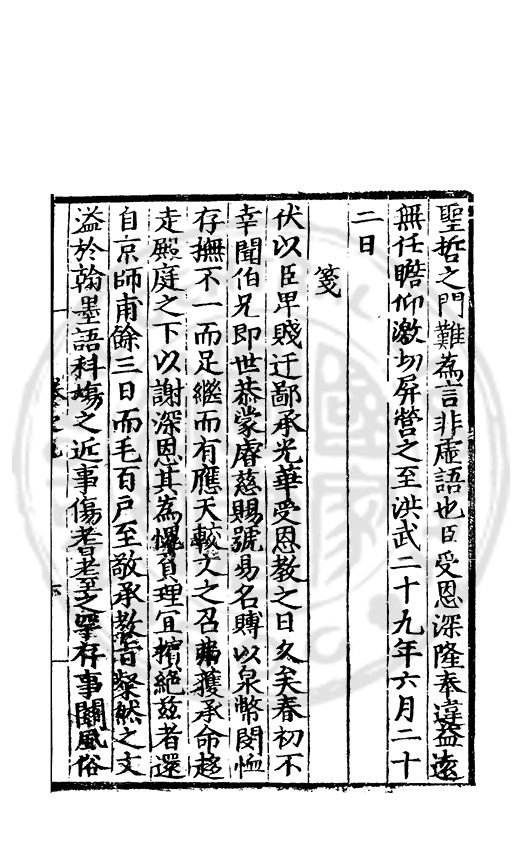 聖哲之門難為言非虛語也臣受恩深隆奉違益遠
無任瞻仰激切屏營之至洪武二十九年六月二十
二日
箋
伏以臣卑賤迂鄙承光華受恩教之日久矣春初不
幸聞伯兄即世恭蒙睿慈賜號易名賻以泉幣閔恤
存撫不一而足繼而有應天較文之召弗獲承命趍
走殿庭之下以謝深恩其為愧負理宜擯絕兹者還
自京師甫餘三日而毛百戶至敬承教言粲然之文
溢於翰墨語科塲之近事傷耆老之存事關風俗